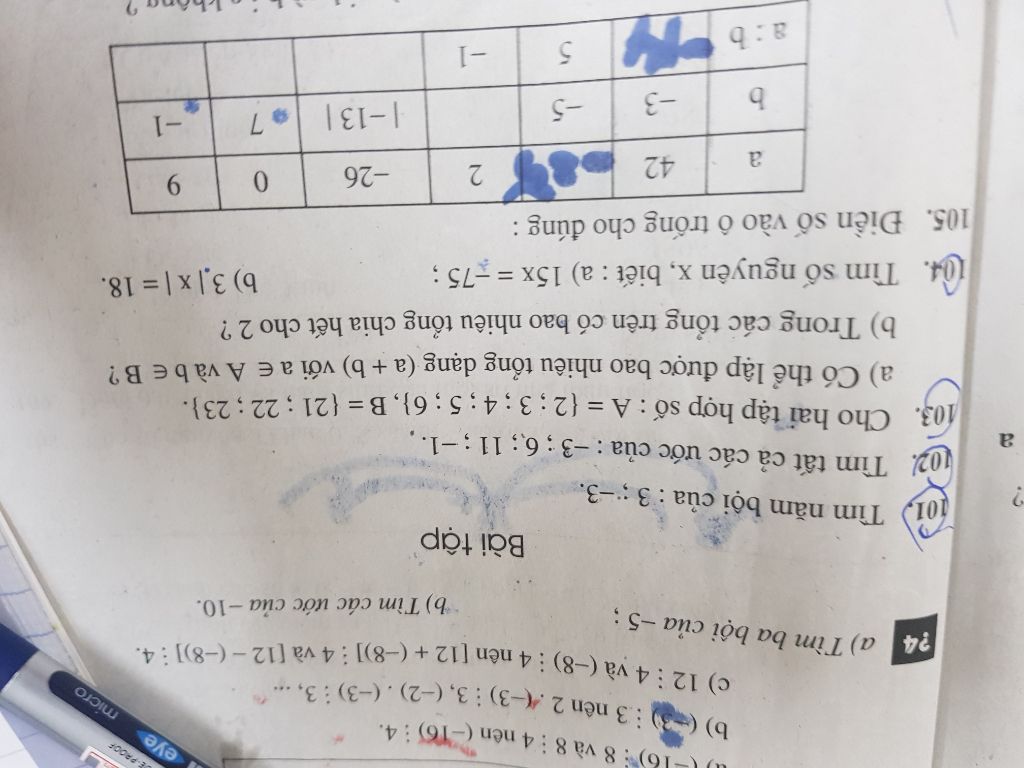 a) (−16) ⋮ 8 và 8 ⋮ 4 nên (−16) ⋮ 4.
b) (−3) ⋮ 3 nên 2 . (−3) ⋮ 3, (−2) . (−3) ⋮ 3, ...
c) 12 ⋮ 4 và (−8) ⋮ 4 nên [12 + (−8)] ⋮ 4 và [12 − (−8)] ⋮ 4.
?4 a) Tìm ba bội của −5 ; b) Tìm các ước của −10.
Bài tập
101. Tìm năm bội của : 3 ; −3.
102. Tìm tất cả các ước của : −3 ; 6 ; 11 ; −1.
103. Cho hai tập hợp số : A = {2 ; 3 ; 4 ; 5 ; 6}, B = {21 ; 22 ; 23}.
a) Có thể lập được bao nhiêu tổng dạng (a + b) với a ∈ A và b ∈ B ?
b) Trong các tổng trên có bao nhiêu tổng chia hết cho 2 ?
104. Tìm số nguyên x, biết : a) 15x = −75 ; b) 3 | x | = 18.
105. Điền số vào ô trống cho đúng :
a 42 2 −26 0 9
b −3 −5 | −13 | 7 −1
a : b 5 −1
a
?
eye
micro
PROOF